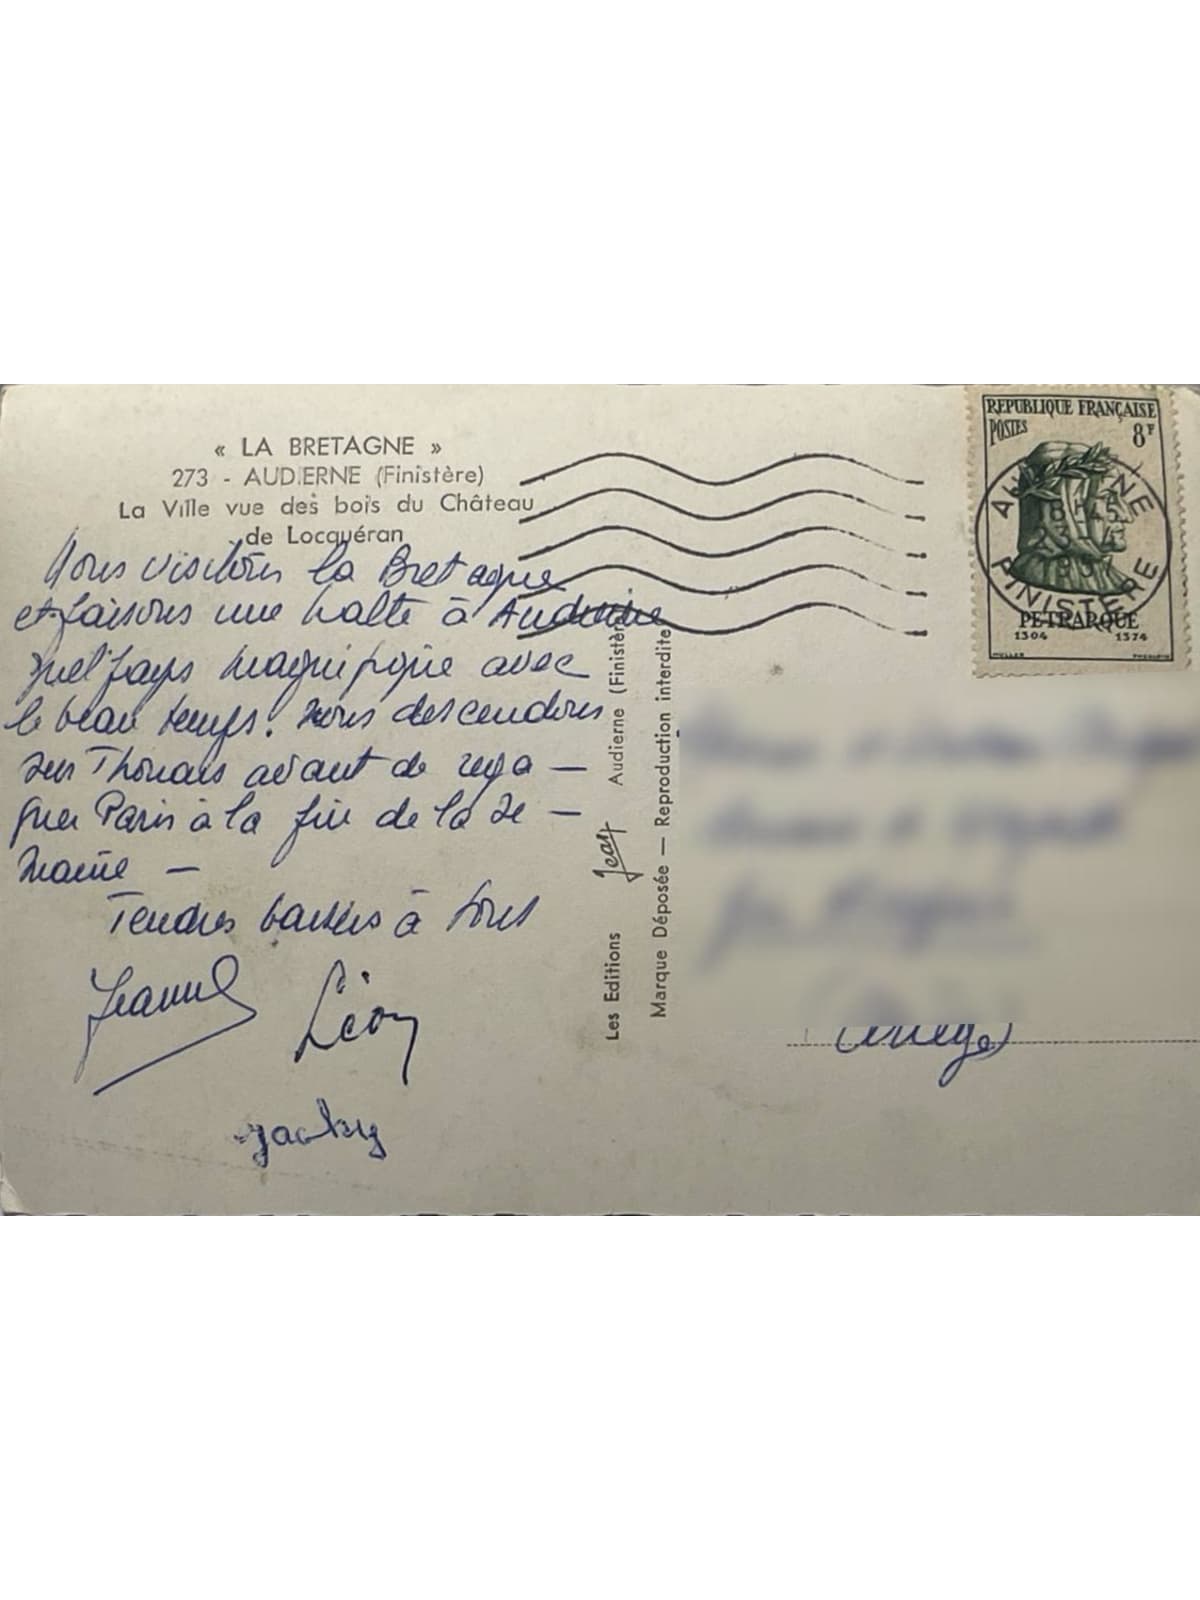 « LA BRETAGNE »
273 - AUDIERNE (Finistère)
La Ville vue des bois du Château
de Locquéran
Nous visitons la Bretagne
et faisons une halte à Audierne
quel pays magnifique avec
le beau temps. nous descendons
sur Thouars avant de rega —
gner Paris à la fin de la se —
maine —
Tendres baisers à tous
Jeanne
Léon
Jacky
Les Editions Jean Audierne (Finistère)
Marque Déposée — Reproduction interdite
REPUBLIQUE FRANÇAISE
POSTES 8F
PETRARQUE
1304 1374
MULLER
AUDIERNE
18H45
FINISTERE
(Ariège)